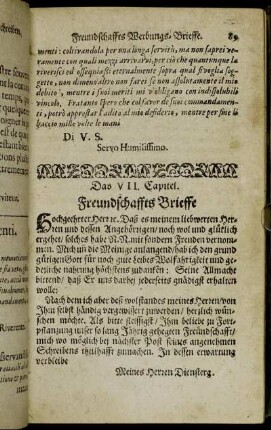 Freundschaffts Werbungs, Brieffe. 89
menti: coltivandola per una longa servitù, ma non saprei ve-
ramente con quali mezzi arrivarvi, per ciò che quantunque la
riverisca ed ossequiasse eternalmente sopra qual si voglia sog-
getto, non dimeno altro non farei se non assolutamente il mio
debito, mentre i suoi meriti mi vi obligano con indissolubili
vincolo, Fratanto spero che col favor de suoi commandamen-
ti, potrò approssar l'adito al mio desiderio, mentre per fine le
baccio mille volte le mani
Di V. S.
Servo Humilissimo.
Das VII. Capitel.
Freundschaffts Brieffe
Hochgeehrter Herr etc. Daß es meinem liebwerten Her-
ren und dessen Angehörigen/ noch wol und glüklich
ergehet/ solches habe N.N. mit sondern Freuden vernom-
men. Mich uñ die Meinige anlangend/ hab ich den grund
gütigen Gott für noch gute leibes Wolfahrigkeit und ge-
deyliche nahrung höchstens zudanken: Seine Allmacht
bittend/ daß Er uns darbei jederseits gnädigst erhalten
wolle:
Nach dem ich aber deß wolstandes meines Herren/ von
Ihm selbst händig vergewissert zuwerden/ herzlich wün-
schen möchte. Als bitte fleissigst/ Ihm beliebe zu Fort-
pflanzung unser so lang Jährig gehegten Freundschafft/
mich wo möglich bei nächster Post seines angenehmen
Schreibens theilhafft zumachen. In dessen erwartung
verbleibe
Meines Herren Dienstberg.